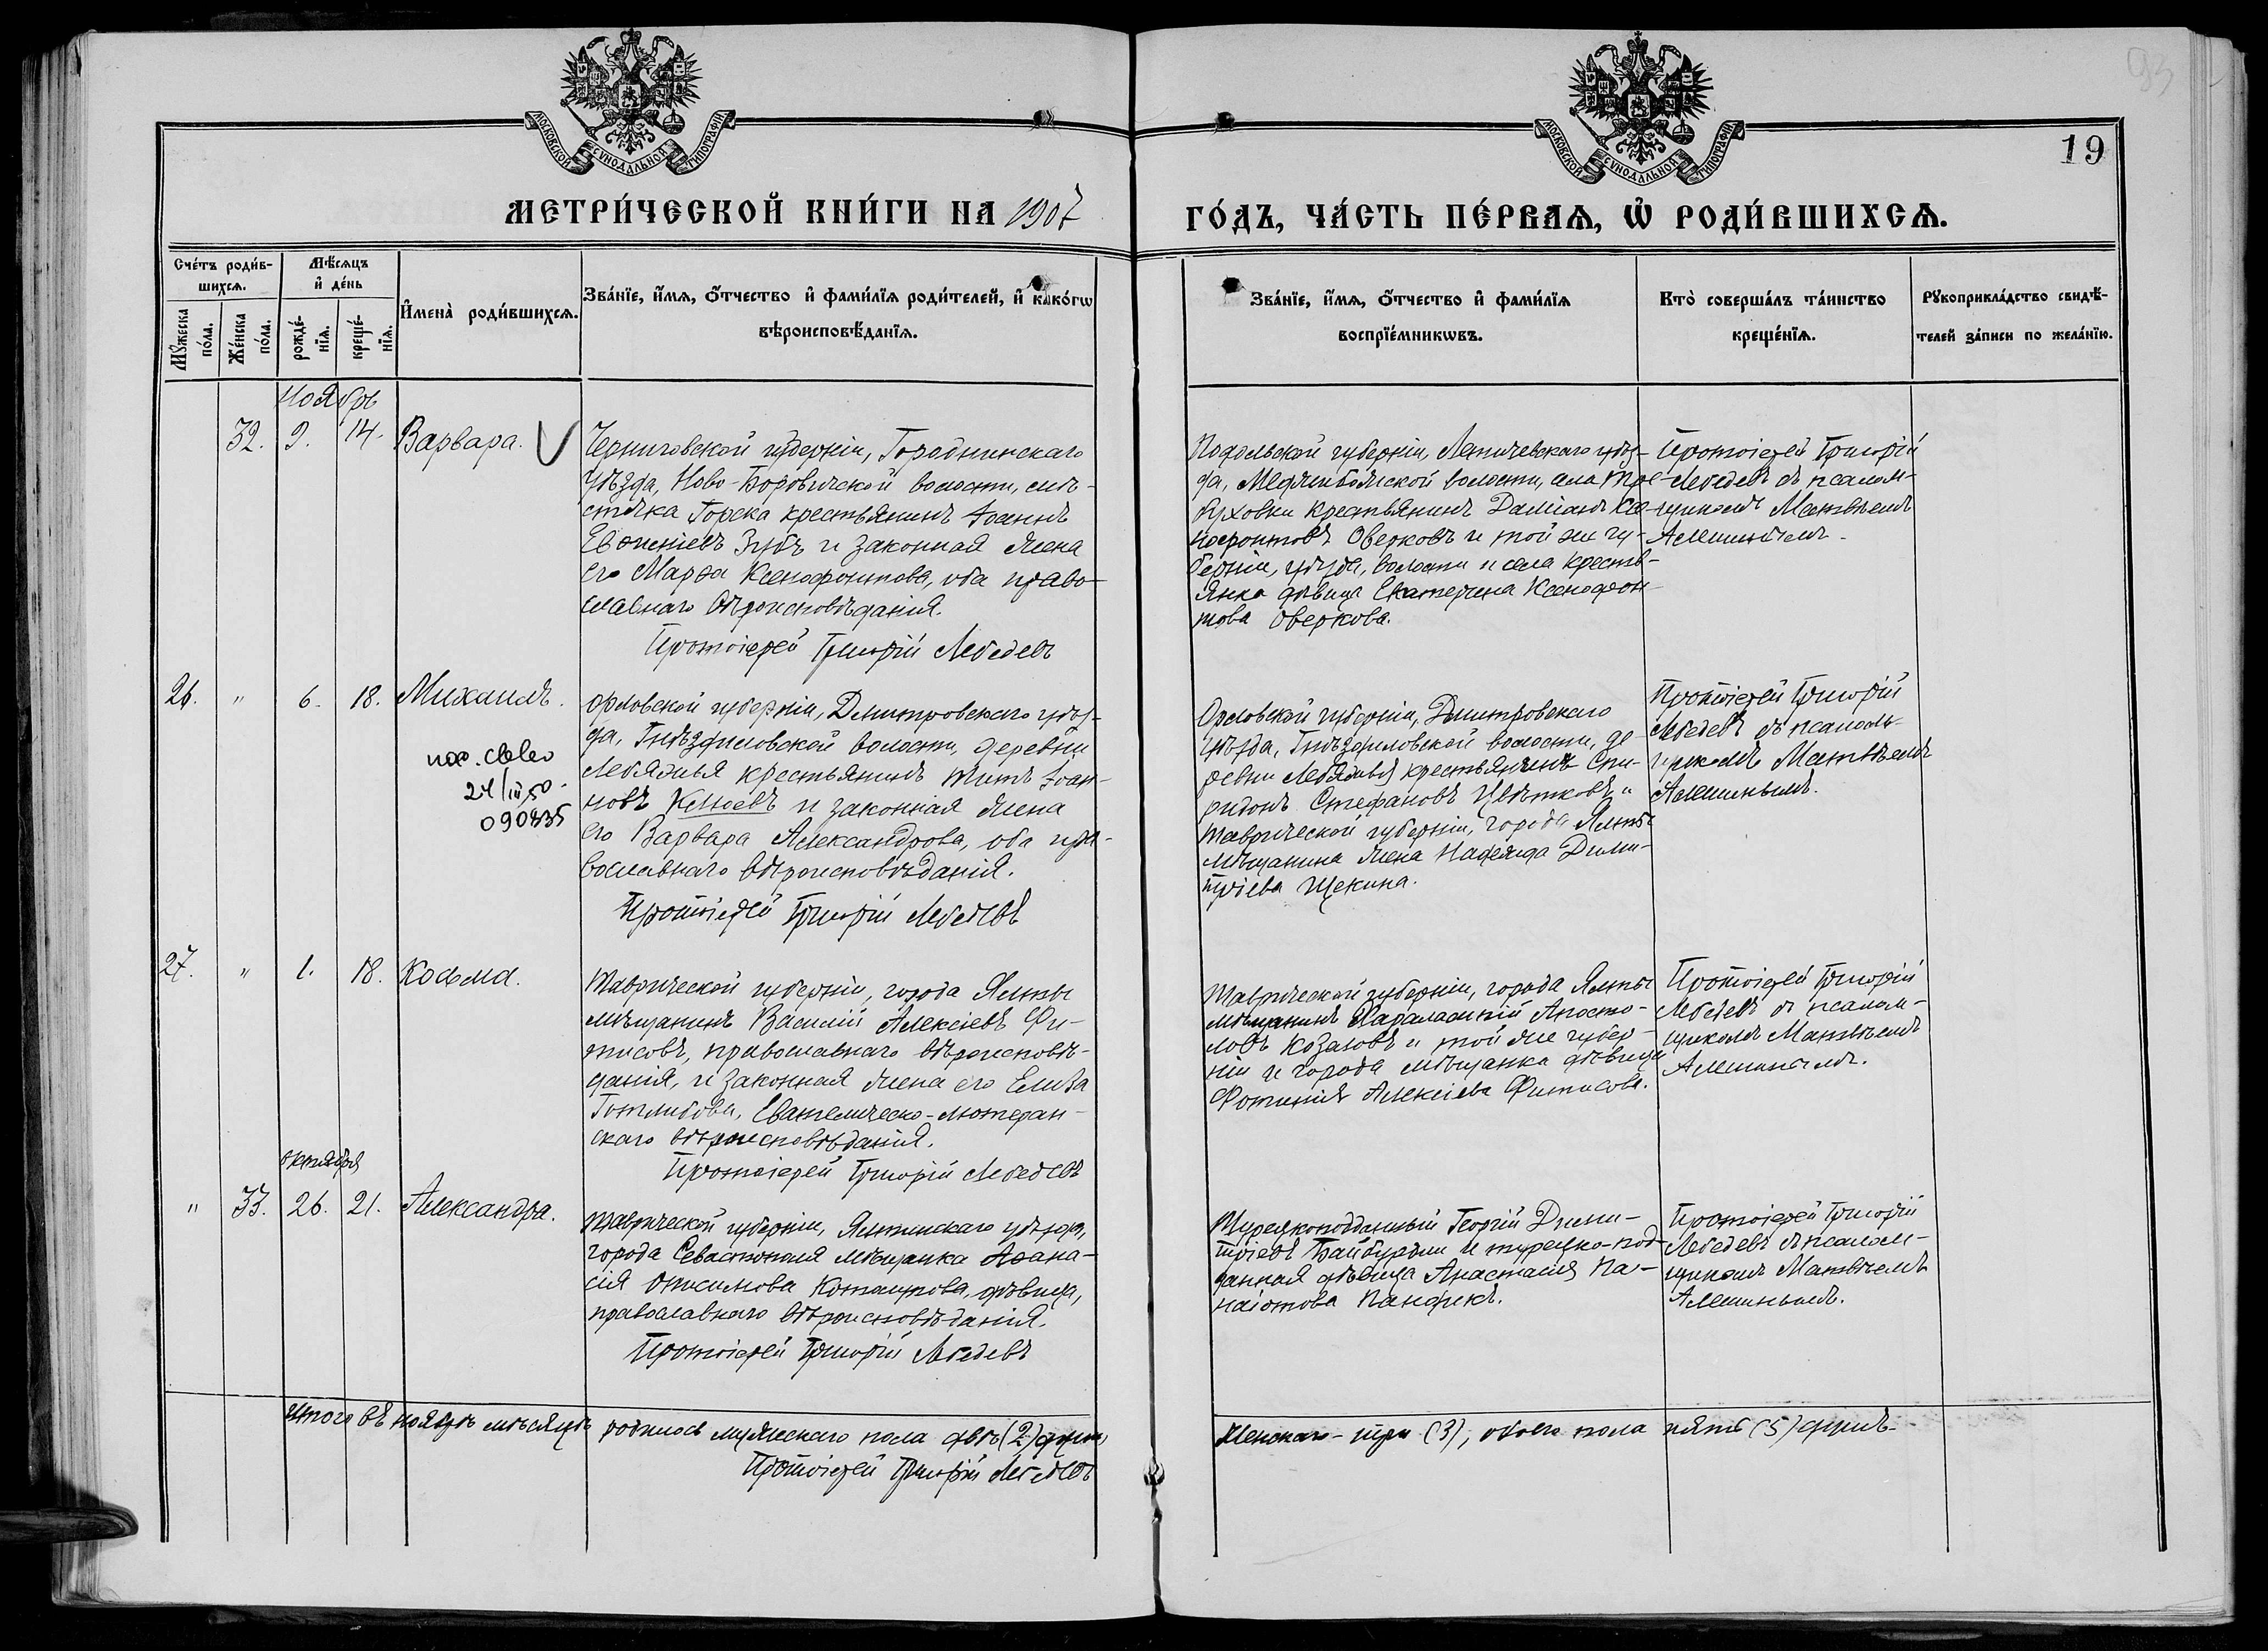 93
19
МОСКОВСКОЙ СѴНОДАЛЬНОЙ ТИПОГРАФІИ
МОСКОВСКОЙ СѴНОДАЛЬНОЙ ТИПОГРАФІИ
МЕТРИ́ЧЕСКОЙ КНИ́ГИ НА 1907
ГО́ДЪ, ЧА́СТЬ ПЕ́РВАѦ, Ѡ҆ РОДИ́ВШИХСѦ.
Сче́тъ роди́в-
шихсѧ.
Мꙋ́жеска по́ла.
Же́нска по́ла.
Мѣ́сѧцъ
и҆ де́нь
рожде́-
нїѧ.
креще́-
нїѧ.
И҆мена̀ роди́вшихсѧ.
Зва́нїе, и҆́мѧ, ѻ҆́тчество и҆ фами́лїѧ роди́телей, и҆ како́гѡ
вѣроисповѣ́данїѧ.
Зва́нїе, и҆́мѧ, ѻ҆́тчество и҆ фами́лїѧ
воспрїе́мникѡвъ.
Кто̀ соверша́лъ та́инство
креще́нїѧ.
Рꙋкоприкла́дство свидѣ́-
телей за́писи по жела́нїю.
Ноябрь
32. 9. 14. Варвара.
Черниговской губерніи, Городнинскаго
уѣзда, Ново-Боровичской волости, мѣ-
стечка Горска крестьянинъ Іоаннъ
Евоиміевъ Зубъ и законная жена
его Марѳа Ксенофонтова, оба право-
славнаго вѣроисповѣданія.
Протоіерей Григорій Лебедевъ
Подольской губерніи, Летичевскаго уѣз-
да, Меджибожской волости, села Тре-
буховки крестьянинъ Даміанъ Ксе-
нофонтовъ Оверковъ и той же гу-
берніи, уѣзда, волости и села кресть-
янка дѣвица Екатерина Ксенофон-
това Оверкова.
Протоіерей Григорій
Лебедевъ съ псалом-
щикомъ Матвѣемъ
Алешинымъ.
26. " 6. 18. Михаилъ.
24/III 50.
090335
Орловской губерніи, Дмитровскаго уѣз-
да, Гнѣздиловской волости, деревни
Лебяжья крестьянинъ Титъ Іоан-
новъ и законная жена
его Варвара Александрова, оба пра-
вославнаго вѣроисповѣданія.
Протоіерей Григорій Лебедевъ
Орловской губерніи, Дмитровскаго
уѣзда, Гнѣздиловской волости, де-
ревни Лебяжья крестьянинъ Спи-
ридонъ Стефановъ Цвѣтковъ и
Таврической губерніи, города Ялты
мѣщанина жена Надежда Дими-
тріева Щекина.
Протоіерей Григорій
Лебедевъ съ псалом-
щикомъ Матвѣемъ
Алешинымъ.
27. " 1. 18. Косьма.
Таврической губерніи, города Ялты
мѣщанинъ Василій Алексіевъ Фи-
тисовъ, православнаго вѣроисповѣ-
данія, и законная жена его Елиза
Готлибова, Евангелическо-лютеран-
скаго вѣроисповѣданія.
Протоіерей Григорій Лебедевъ
Таврической губерніи, города Ялты
мѣщанинъ Харалампій Апосто-
ловъ Козаковъ и той же губер-
ніи и города мѣщанка дѣвица
Фотинія Алексіева Фитисова.
Протоіерей Григорій
Лебедевъ съ псалом-
щикомъ Матвѣемъ
Алешинымъ.
октября
" 33. 26. 21. Александра.
Таврической губерніи, Ялтинскаго уѣзда,
города Севастополя мѣщанка Аѳана-
сія Онисимова дѣвица,
православнаго вѣроисповѣданія.
Протоіерей Григорій Лебедевъ
Турецкоподданный Георгій Дими-
тріевъ Байбуртли и турецко-под-
данная дѣвица Анастасія Па-
наіотова
Протоіерей Григорій
Лебедевъ съ псалом-
щикомъ Матвѣемъ
Алешинымъ.
Итого въ ноябрѣ мѣсяцѣ родилось мужескаго пола двѣ (2) души,
женскаго - три (3), обоего пола пять (5) душъ.
Протоіерей Григорій Лебедевъ